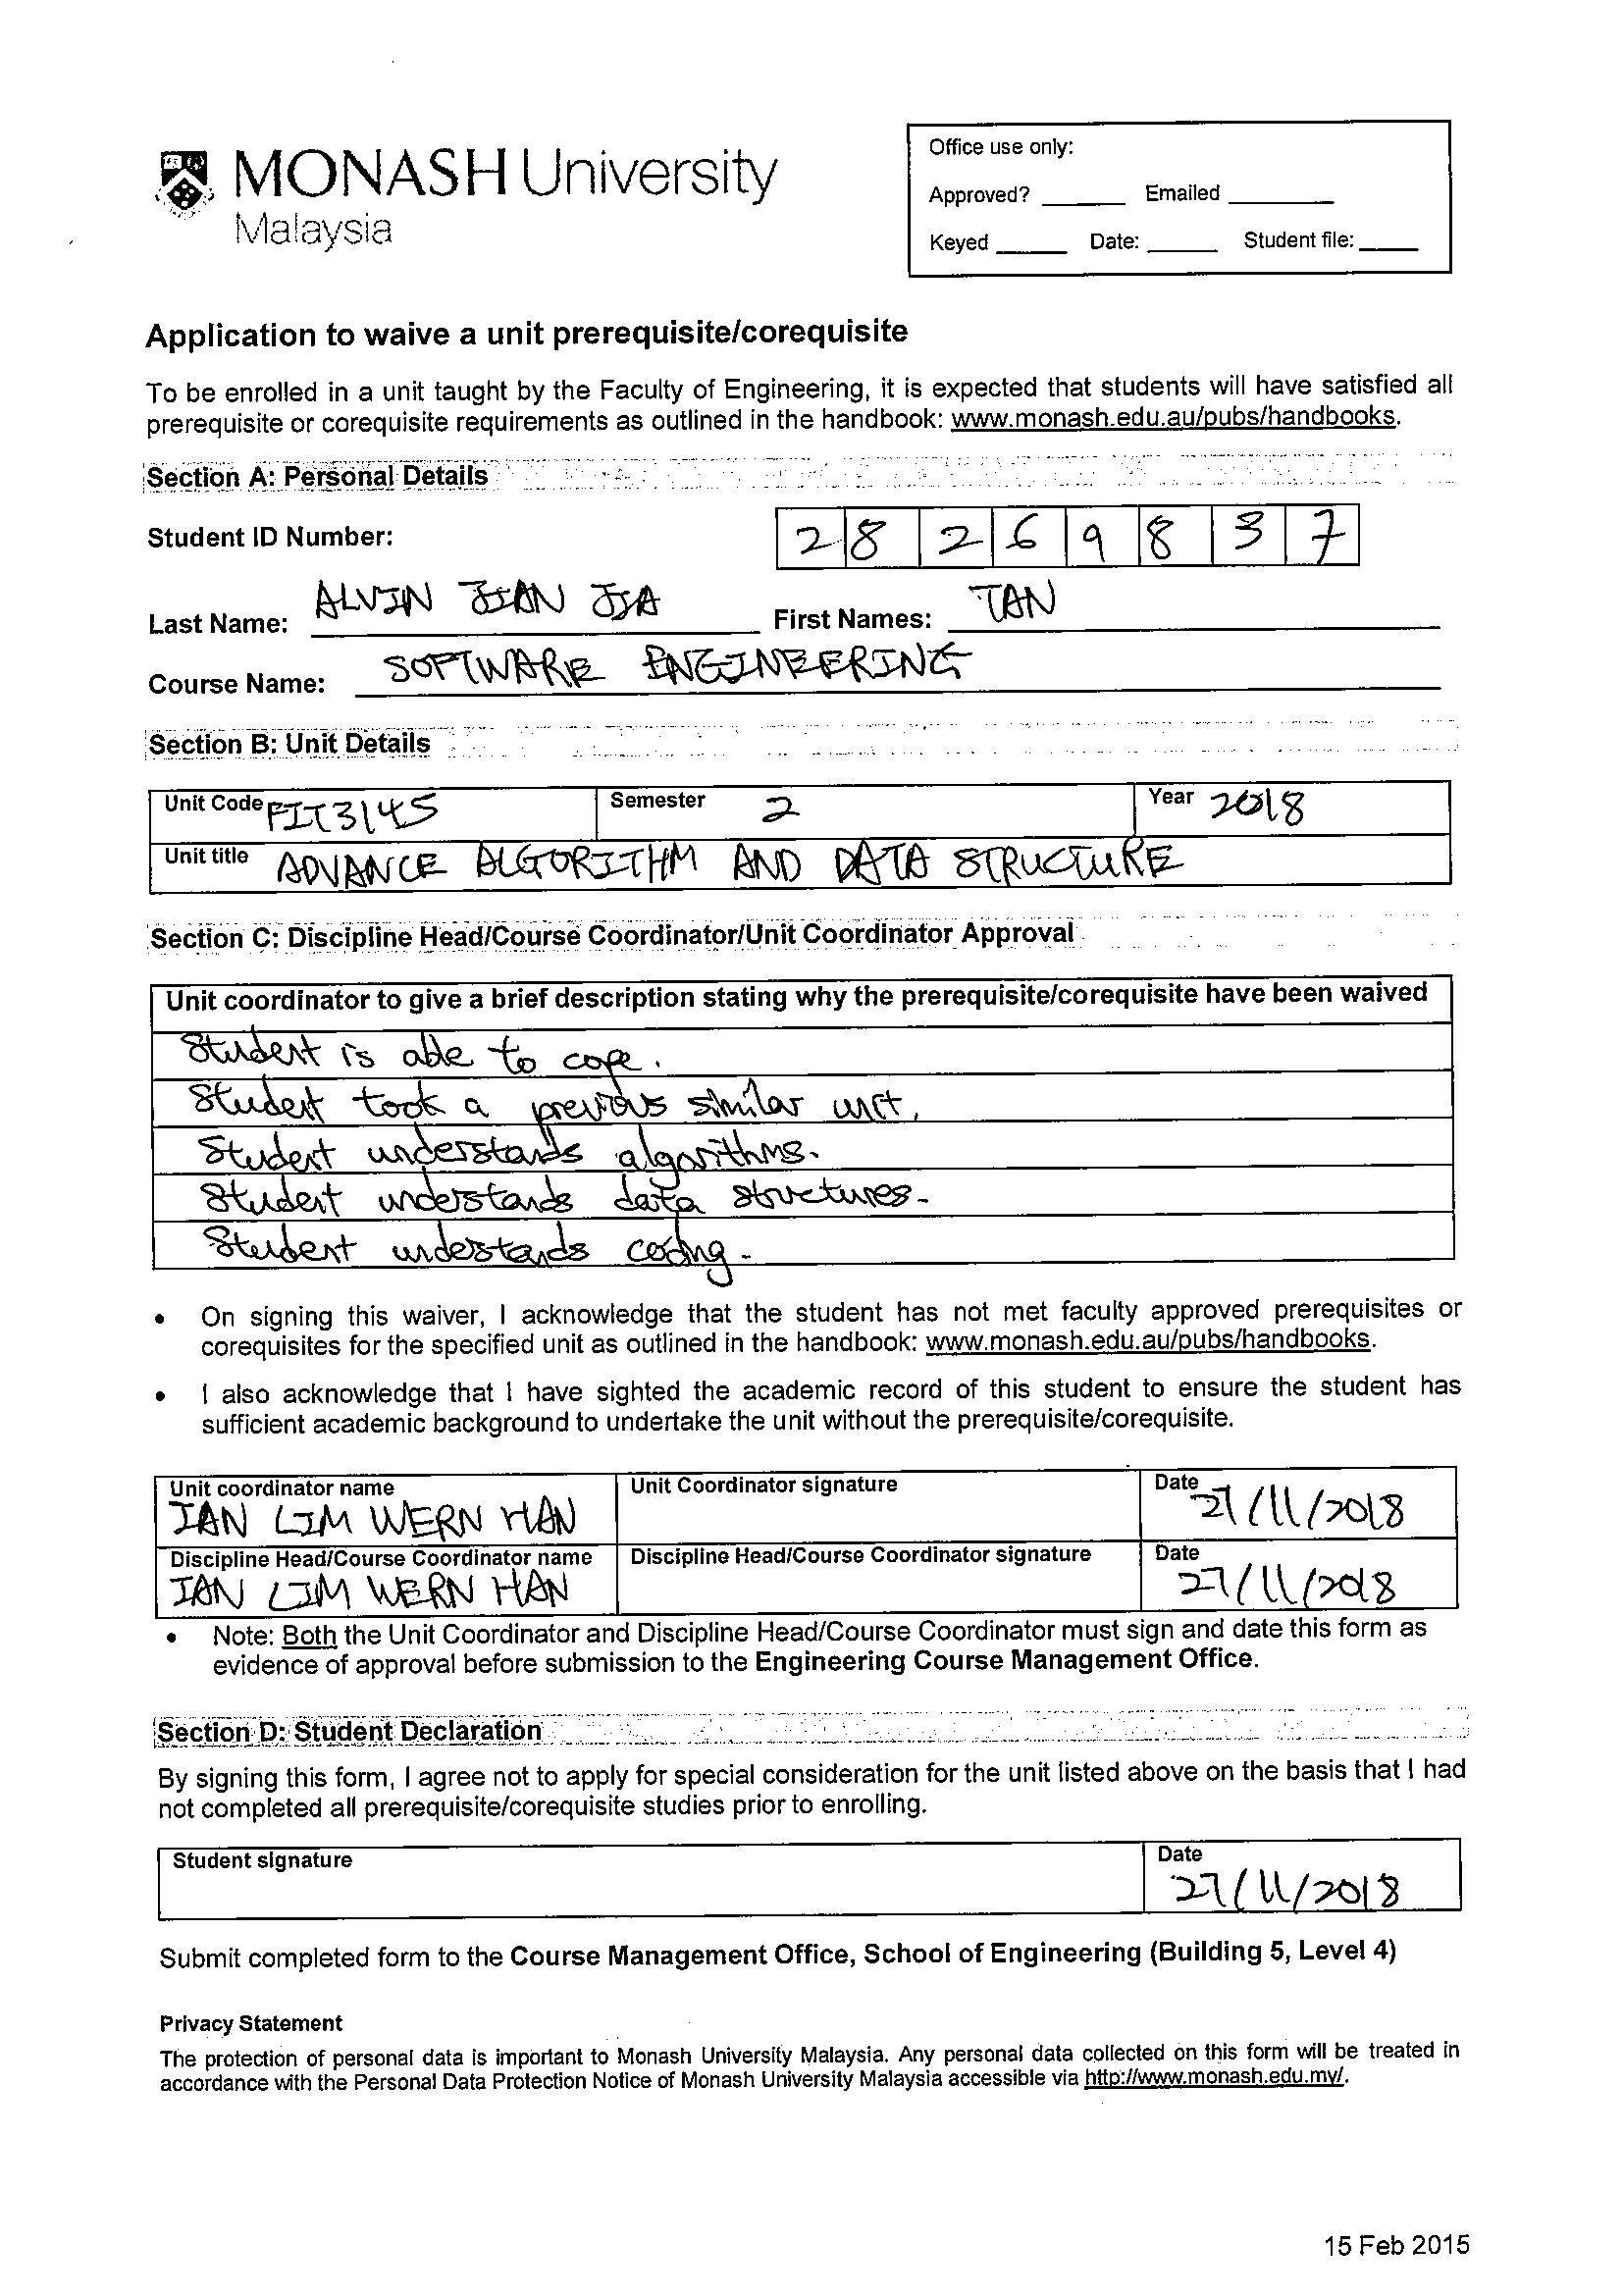 MONASH University
Malaysia
Office use only:
Approved? ______ Emailed ________
Keyed _____ Date: _____ Student file: ____
Application to waive a unit prerequisite/corequisite
To be enrolled in a unit taught by the Faculty of Engineering, it is expected that students will have satisfied all
prerequisite or corequisite requirements as outlined in the handbook: www.monash.edu.au/pubs/handbooks.
Section A: Personal Details
Student ID Number: 2 8 2 6 9 8 3 7
Last Name: ALVIN JIAN JIA First Names: TAN
Course Name: SOFTWARE ENGINEERING
Section B: Unit Details
Unit Code FIT3145 Semester 2 Year 2018
Unit title ADVANCE ALGORITHM AND DATA STRUCTURE
Section C: Discipline Head/Course Coordinator/Unit Coordinator Approval
Unit coordinator to give a brief description stating why the prerequisite/corequisite have been waived
Student is able to cope.
Student took a previous similar unit.
Student understands algorithms.
Student understands data structures.
Student understands coding.
• On signing this waiver, I acknowledge that the student has not met faculty approved prerequisites or
corequisites for the specified unit as outlined in the handbook: www.monash.edu.au/pubs/handbooks.
• I also acknowledge that I have sighted the academic record of this student to ensure the student has
sufficient academic background to undertake the unit without the prerequisite/corequisite.
Unit coordinator name Unit Coordinator signature Date
IAN LIM WERN HAN 27/11/2018
Discipline Head/Course Coordinator name Discipline Head/Course Coordinator signature Date
IAN LIM WERN HAN 27/11/2018
• Note: Both the Unit Coordinator and Discipline Head/Course Coordinator must sign and date this form as
evidence of approval before submission to the Engineering Course Management Office.
Section D: Student Declaration
By signing this form, I agree not to apply for special consideration for the unit listed above on the basis that I had
not completed all prerequisite/corequisite studies prior to enrolling.
Student signature Date
27/11/2018
Submit completed form to the Course Management Office, School of Engineering (Building 5, Level 4)
Privacy Statement
The protection of personal data is important to Monash University Malaysia. Any personal data collected on this form will be treated in
accordance with the Personal Data Protection Notice of Monash University Malaysia accessible via http://www.monash.edu.my/.
15 Feb 2015